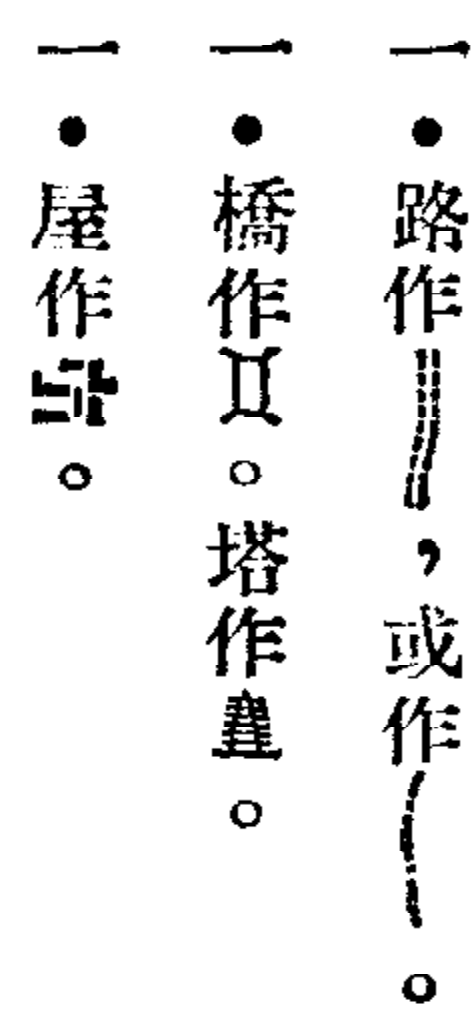 一●路作，或作。
一●橋作。塔作。
一●屋作。